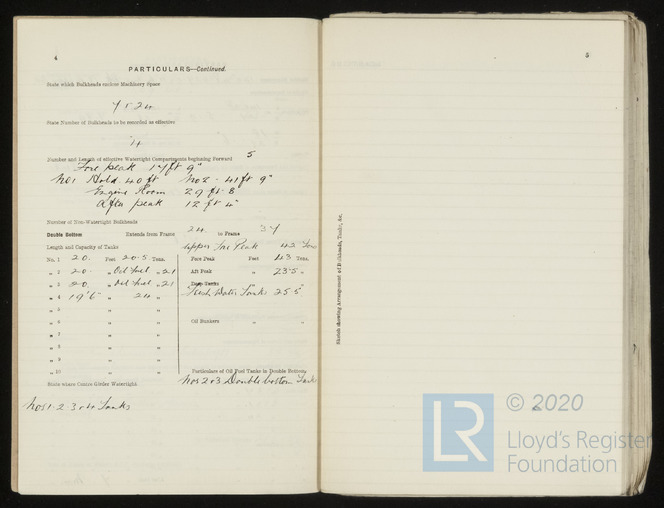 4
PARTICULARS—Continued.
State which Bulkheads enclose Machinery Space
7 & 24
State Number of Bulkheads to be recorded as effective
4
Number and Length of effective Watertight Compartments beginning Forward 5
Fore peak 17 ft 9"
No1 Hold 40 ft No2 - 41 ft 9"
Engine Room 29 ft 8
After peak 12 ft 4"
Number of Non-Watertight Bulkheads
Double Bottom Extends from Frame 24 to Frame 37
Length and Capacity of Tanks Upper Fore Peak 42 Tons
No. 1 20 Feet 20.5 Tons. Fore Peak Feet 43 Tons.
" 2 20 " Oil Fuel " 21 Aft Peak " 23.5 "
" 3 20 " Oil Fuel " 21 Deep Tanks
" 4 19'6" " 24 " Fresh Water Tanks 25.5"
" 5 " "
" 6 " " Oil Bunkers " "
" 7 " "
" 8 " "
" 9 " "
" 10 " " Particulars of Oil Fuel Tanks in Double Bottom
State where Centre Girder Watertight Nos 2 & 3 Double bottom Tank
Nos 1. 2. 3 & 4 Tanks
5
Sketch showing Arrangement of Bulkheads, Tanks, &c.
LR © 2020
Lloyd's Register
Foundation